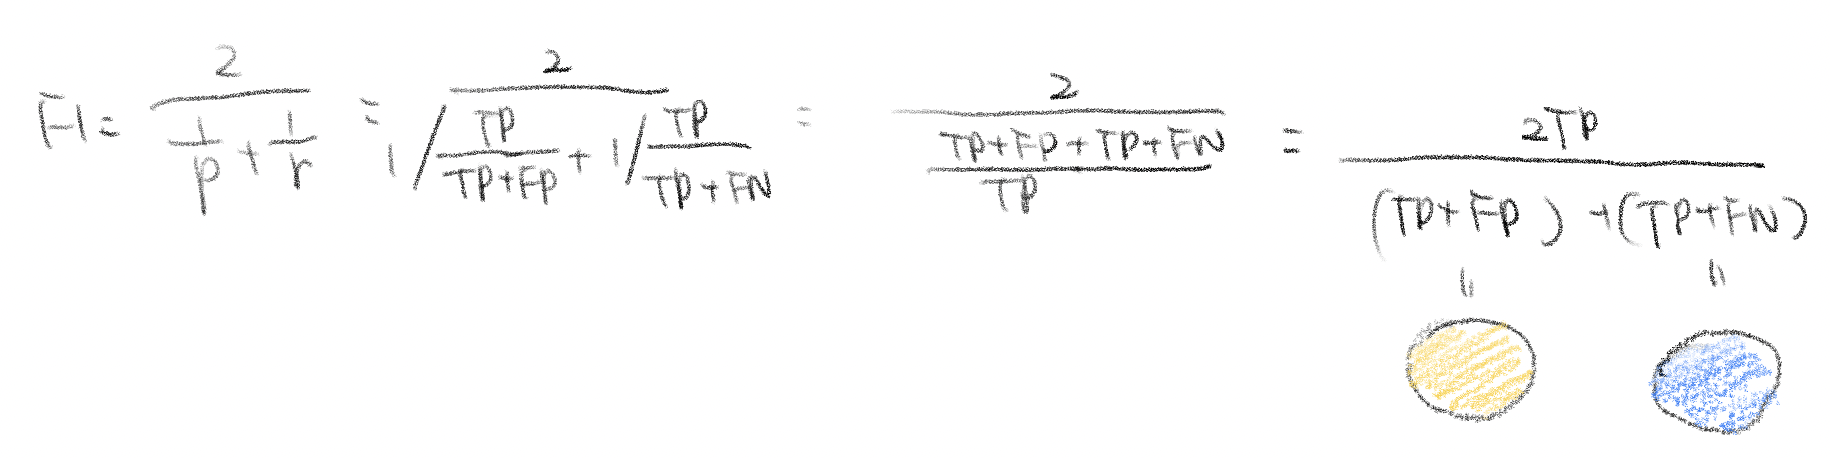 F1 = 2 / (1/p + 1/r) = 2 / (1/(TP/(TP+FP)) + 1/(TP/(TP+FN))) = 2 / ((TP+FP+TP+FN)/TP) = 2TP / ((TP+FP)+(TP+FN))
= =